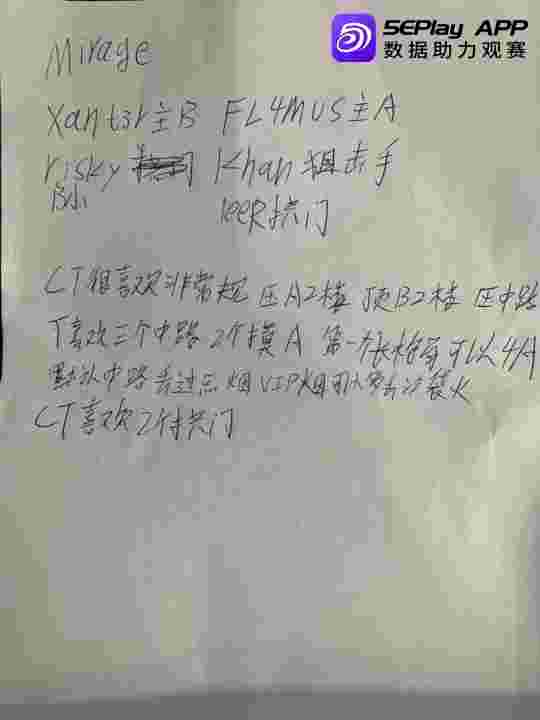 5EPlay APP
数据助力观赛
Mirage
Xant3r主B FL4MUS主A
risky Khan 狙击手
B小 leeR拱门
CT很喜欢非常规 压A2楼 顶B2楼 压中路
T喜欢三个中路 2个摸A 第一长枪局可以4A
默认中路 过点烟 VIP烟
CT喜欢2个拱门